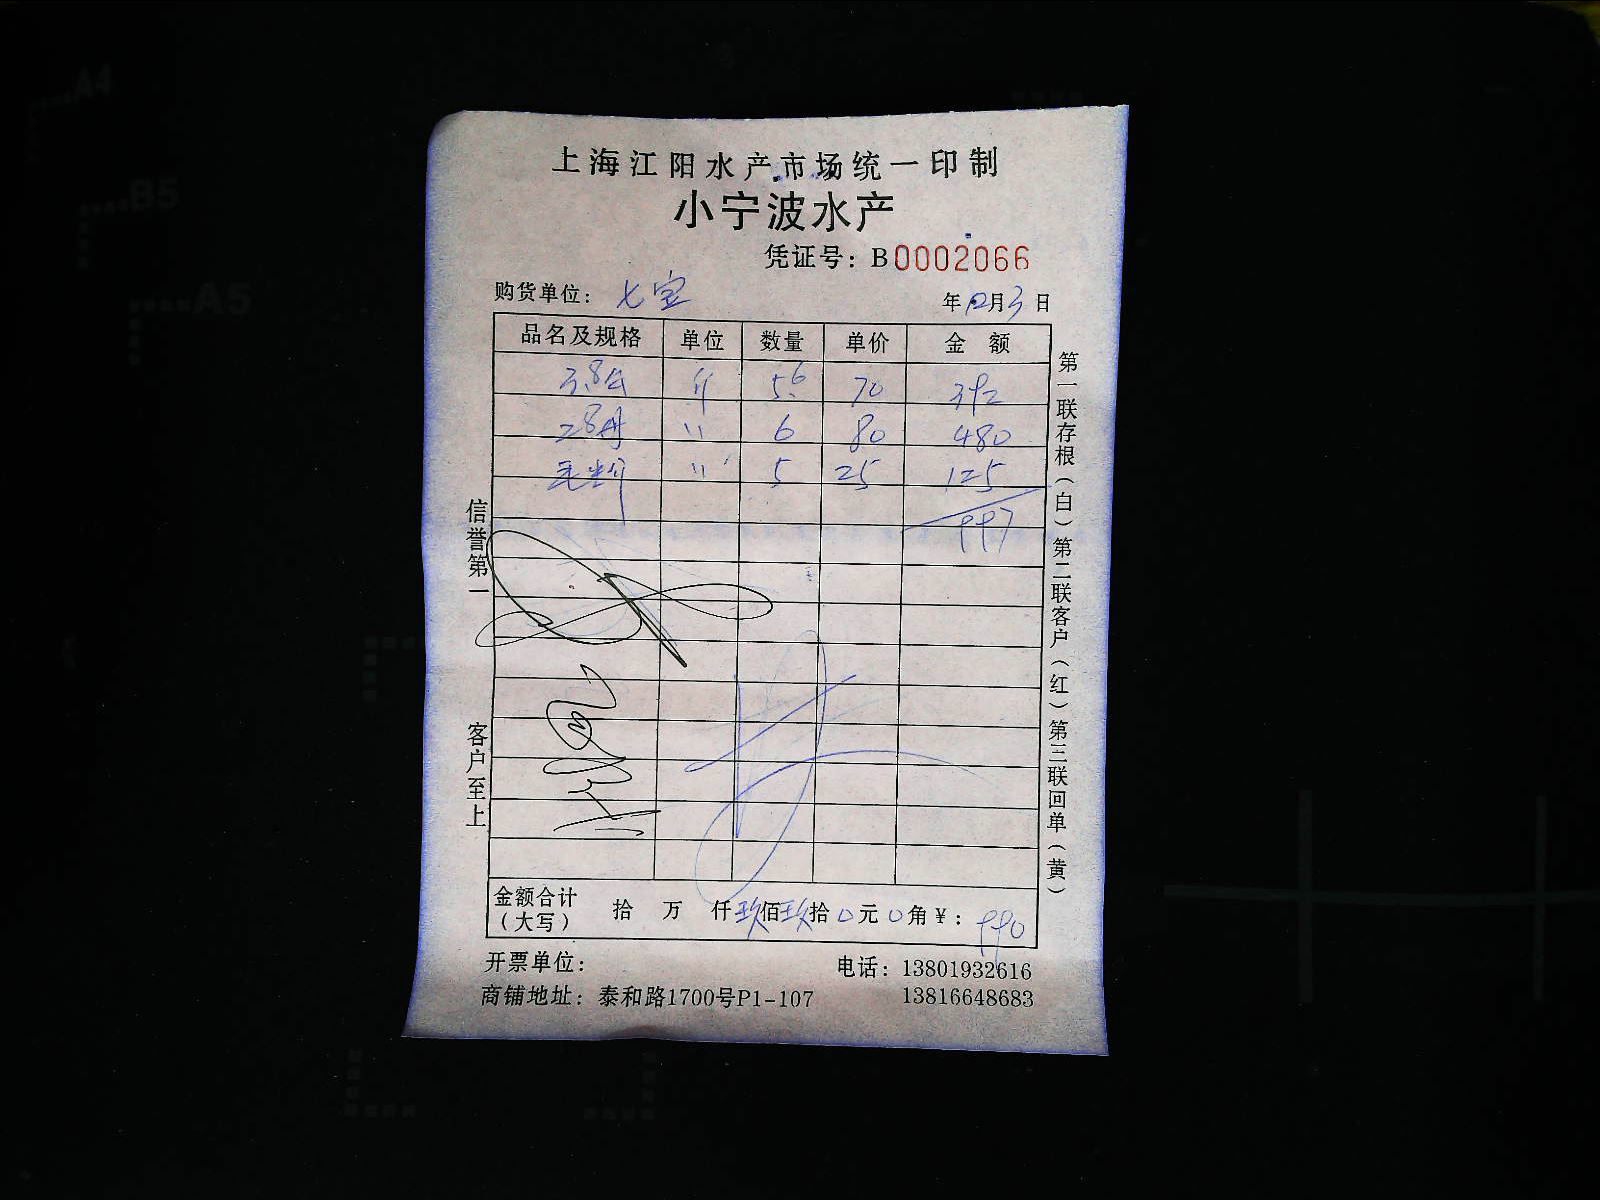 上海江阳水产市场统一印制
小宁波水产
凭证号：B0002066
购货单位：七宝 年12月3日
品名及规格 单位 数量 单价 金额
3.8公 斤 5.6 70 392
2.8母 〃 6 80 480
毛 〃 5 25 125
997
信誉第一
客户至上
第一联存根（白）第二联客户（红）第三联回单（黄）
金额合计（大写） 拾 万 仟玖佰玖拾0元0角￥：990
开票单位： 电话：13801932616
商铺地址：泰和路1700号P1-107 13816648683
A4
B5
A5